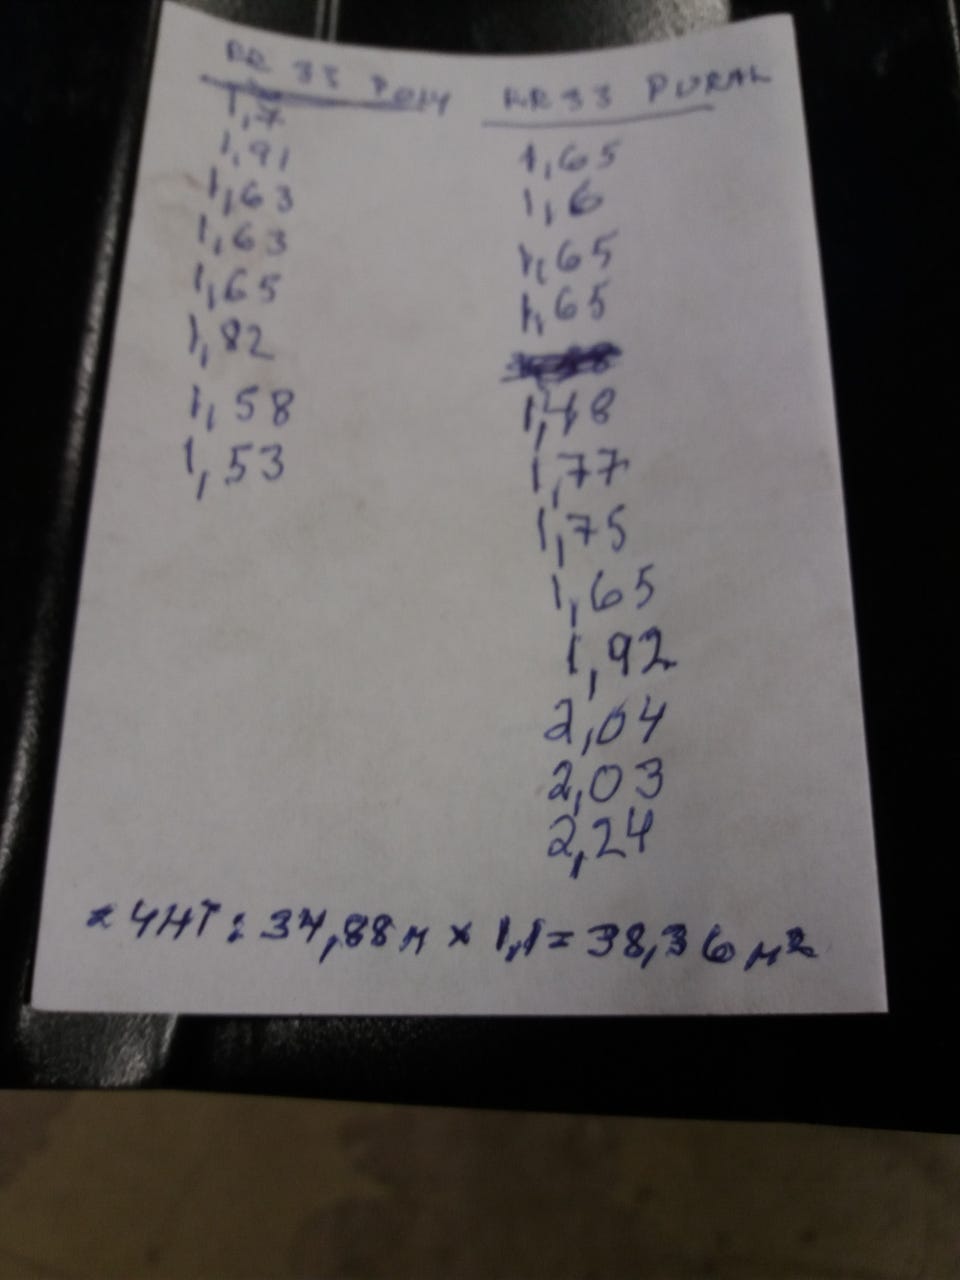 RR 33 POLY
1,7
1,91
1,63
1,63
1,65
1,82
1,58
1,53
RR33 PURAL
1,65
1,6
1,65
1,65
1,48
1,77
1,75
1,65
1,92
2,04
2,03
2,24
34,88м x 1,1 = 38,36 м²